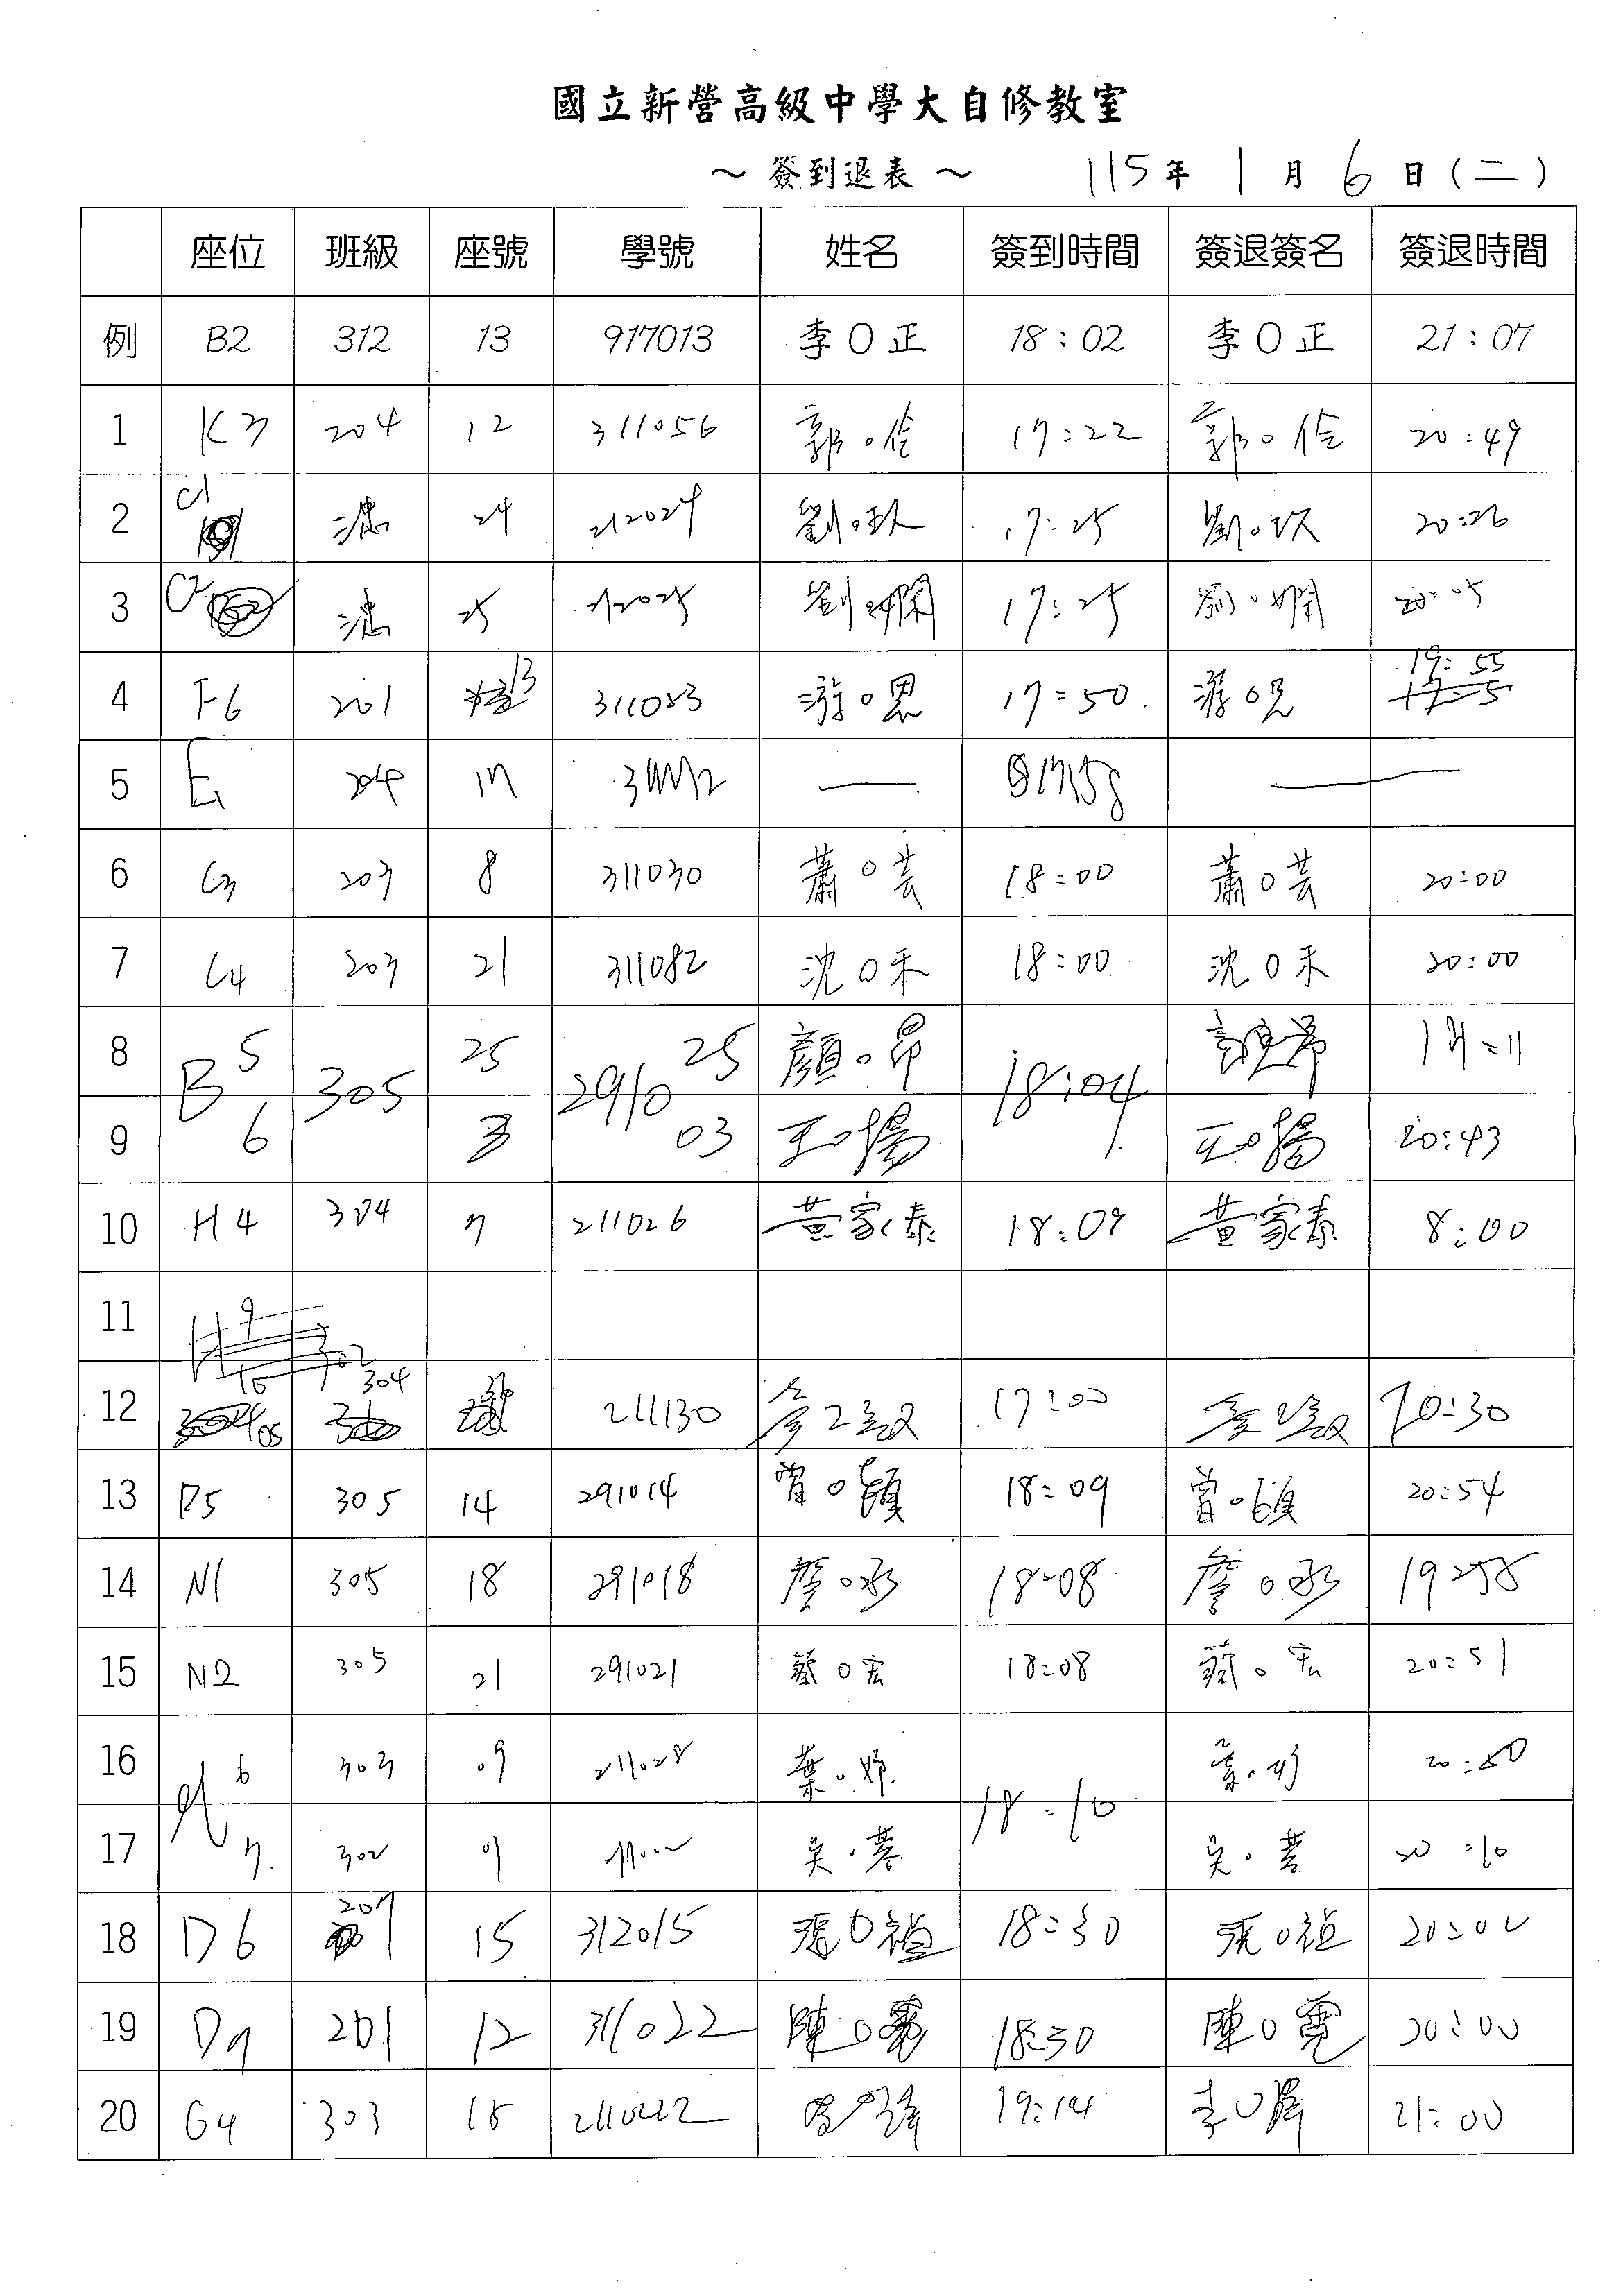 國立新營高級中學大自修教室
～簽到退表～ 115年 1月 6日(二)
座位 班級 座號 學號 姓名 簽到時間 簽退簽名 簽退時間
例 B2 312 13 917013 李O正 18:02 李O正 21:07
1 K3 204 12 311056 郭O佺 17:22 郭O佺 20:49
2 C1 24 212024 劉O玖 17:25 劉O玖 20:26
3 C2 25 212025 劉O嫻 17:25 劉O嫻 20:05
4 F6 201 13 311083 游O恩 17:50 游O恩 19:55
5 E1 204 17 — 17:58 —
6 C3 203 8 311030 蕭O芸 18:00 蕭O芸 20:00
7 C4 203 21 311082 沈O禾 18:00 沈O禾 20:00
8 B5 305 25 291025 顏O昂 18:04
9 6 3 03 王O揚 王O揚 20:43
10 H4 304 7 211026 黃家泰 18:09 黃家泰 8:00
11
12 304 211130 17:00 20:30
13 D5 305 14 291014 曾O頎 18:09 曾O頎 20:54
14 N1 305 18 291018 詹O丞 18:08 詹O丞 19:58
15 N2 305 21 291021 蔡O宏 18:08 蔡O宏 20:51
16 A6 303 09 211028 葉O妤 18:10 20:50
17 7 302 吳O蓁 吳O蓁 20:10
18 D6 207 15 312015 張O禎 18:30 張O禎 20:00
19 D7 201 12 311022 陳O霓 18:30 陳O霓 20:00
20 G4 303 15 19:14 李O 21:00